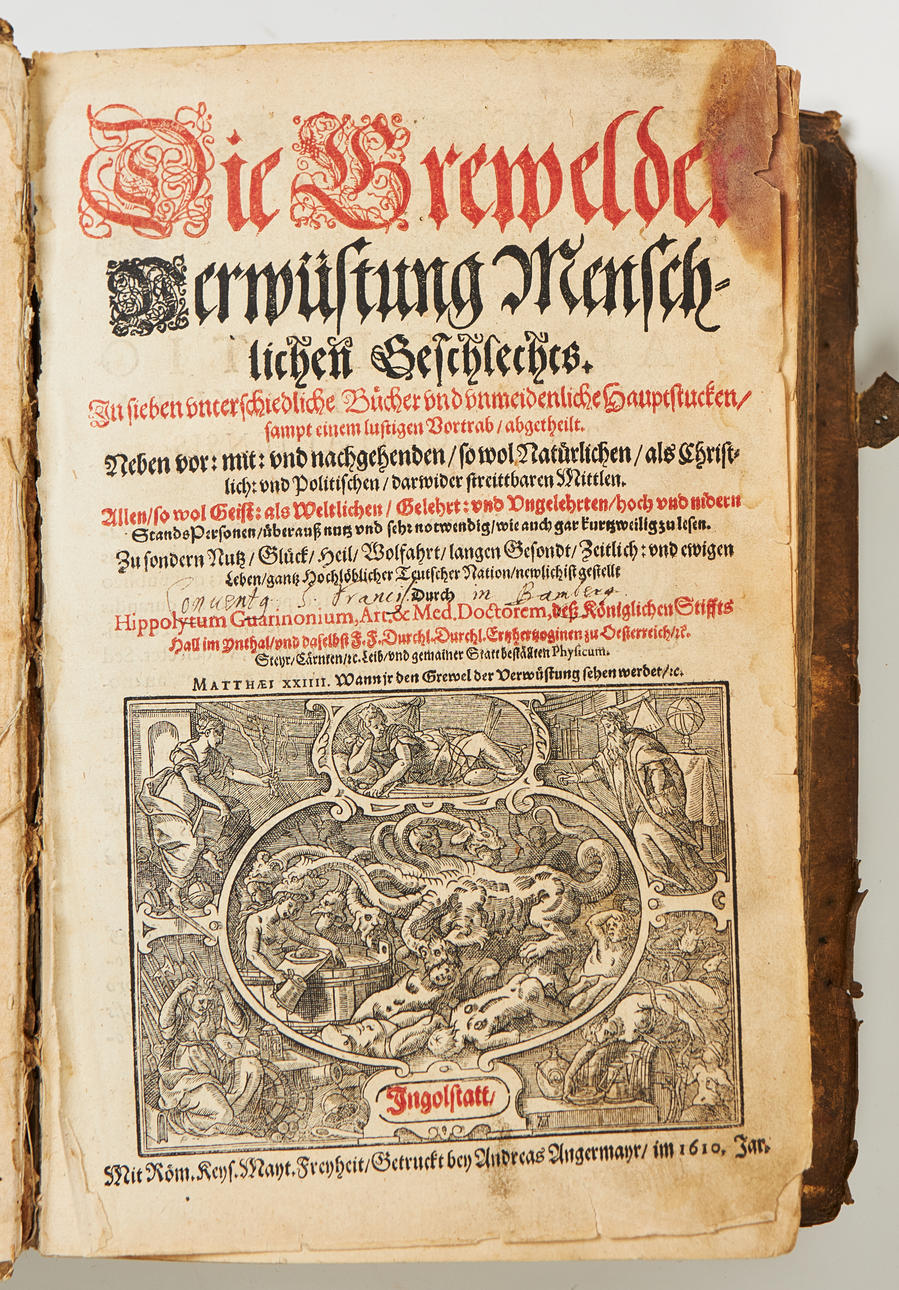 Die Grewel der
Verwüstung Mensch-
lichen Geschlechts.
In sieben vnterschiedliche Bücher vnd vnmeidenliche Hauptstucken/
sampt einem lustigen Vortrab/ abgetheilt.
Neben vor: mit: vnd nachgehenden/ so wol Natürlichen/ als Christ-
lich: vnd Politischen/ darwider streittbaren Mittlen.
Allen/ so wol Geist: als Weltlichen/ Gelehrt: vnd Vngelehrten/ hoch vnd nidern
Stands Personen/ überauß nutz vnd sehr notwendig/ wie auch gar kurtzweilig zu lesen.
Zu sondern Nutz/ Glück/ Heil/ Wolfahrt/ langen Gesondt/ Zeitlich: vnd ewigen
Leben/ gantz Hochlöblicher Teutscher Nation/ newlich ist gestellt
Conventq. S. Francisci in Bamberg.
Durch
Hippolytum Guarinonium, Art. & Med. Doctorem, deß Königlichen Stiffts
Hall im Ynthal/ vnd daselbst F. F. Durchl. Durchl. Ertzhertzoginen zu Oesterreich/ ꝛc.
Steyr/ Cärnten/ ꝛc. Leib/ vnd gemainer Statt bestälten Physicum.
MATTHÆI XXIIII. Wann jr den Grewel der Verwüstung sehen werdet/ ꝛc.
Ingolstatt/
Mit Röm. Keys. Mayt. Freyheit/ Getruckt bey Andreas Angermayr/ im 1610. Jar.